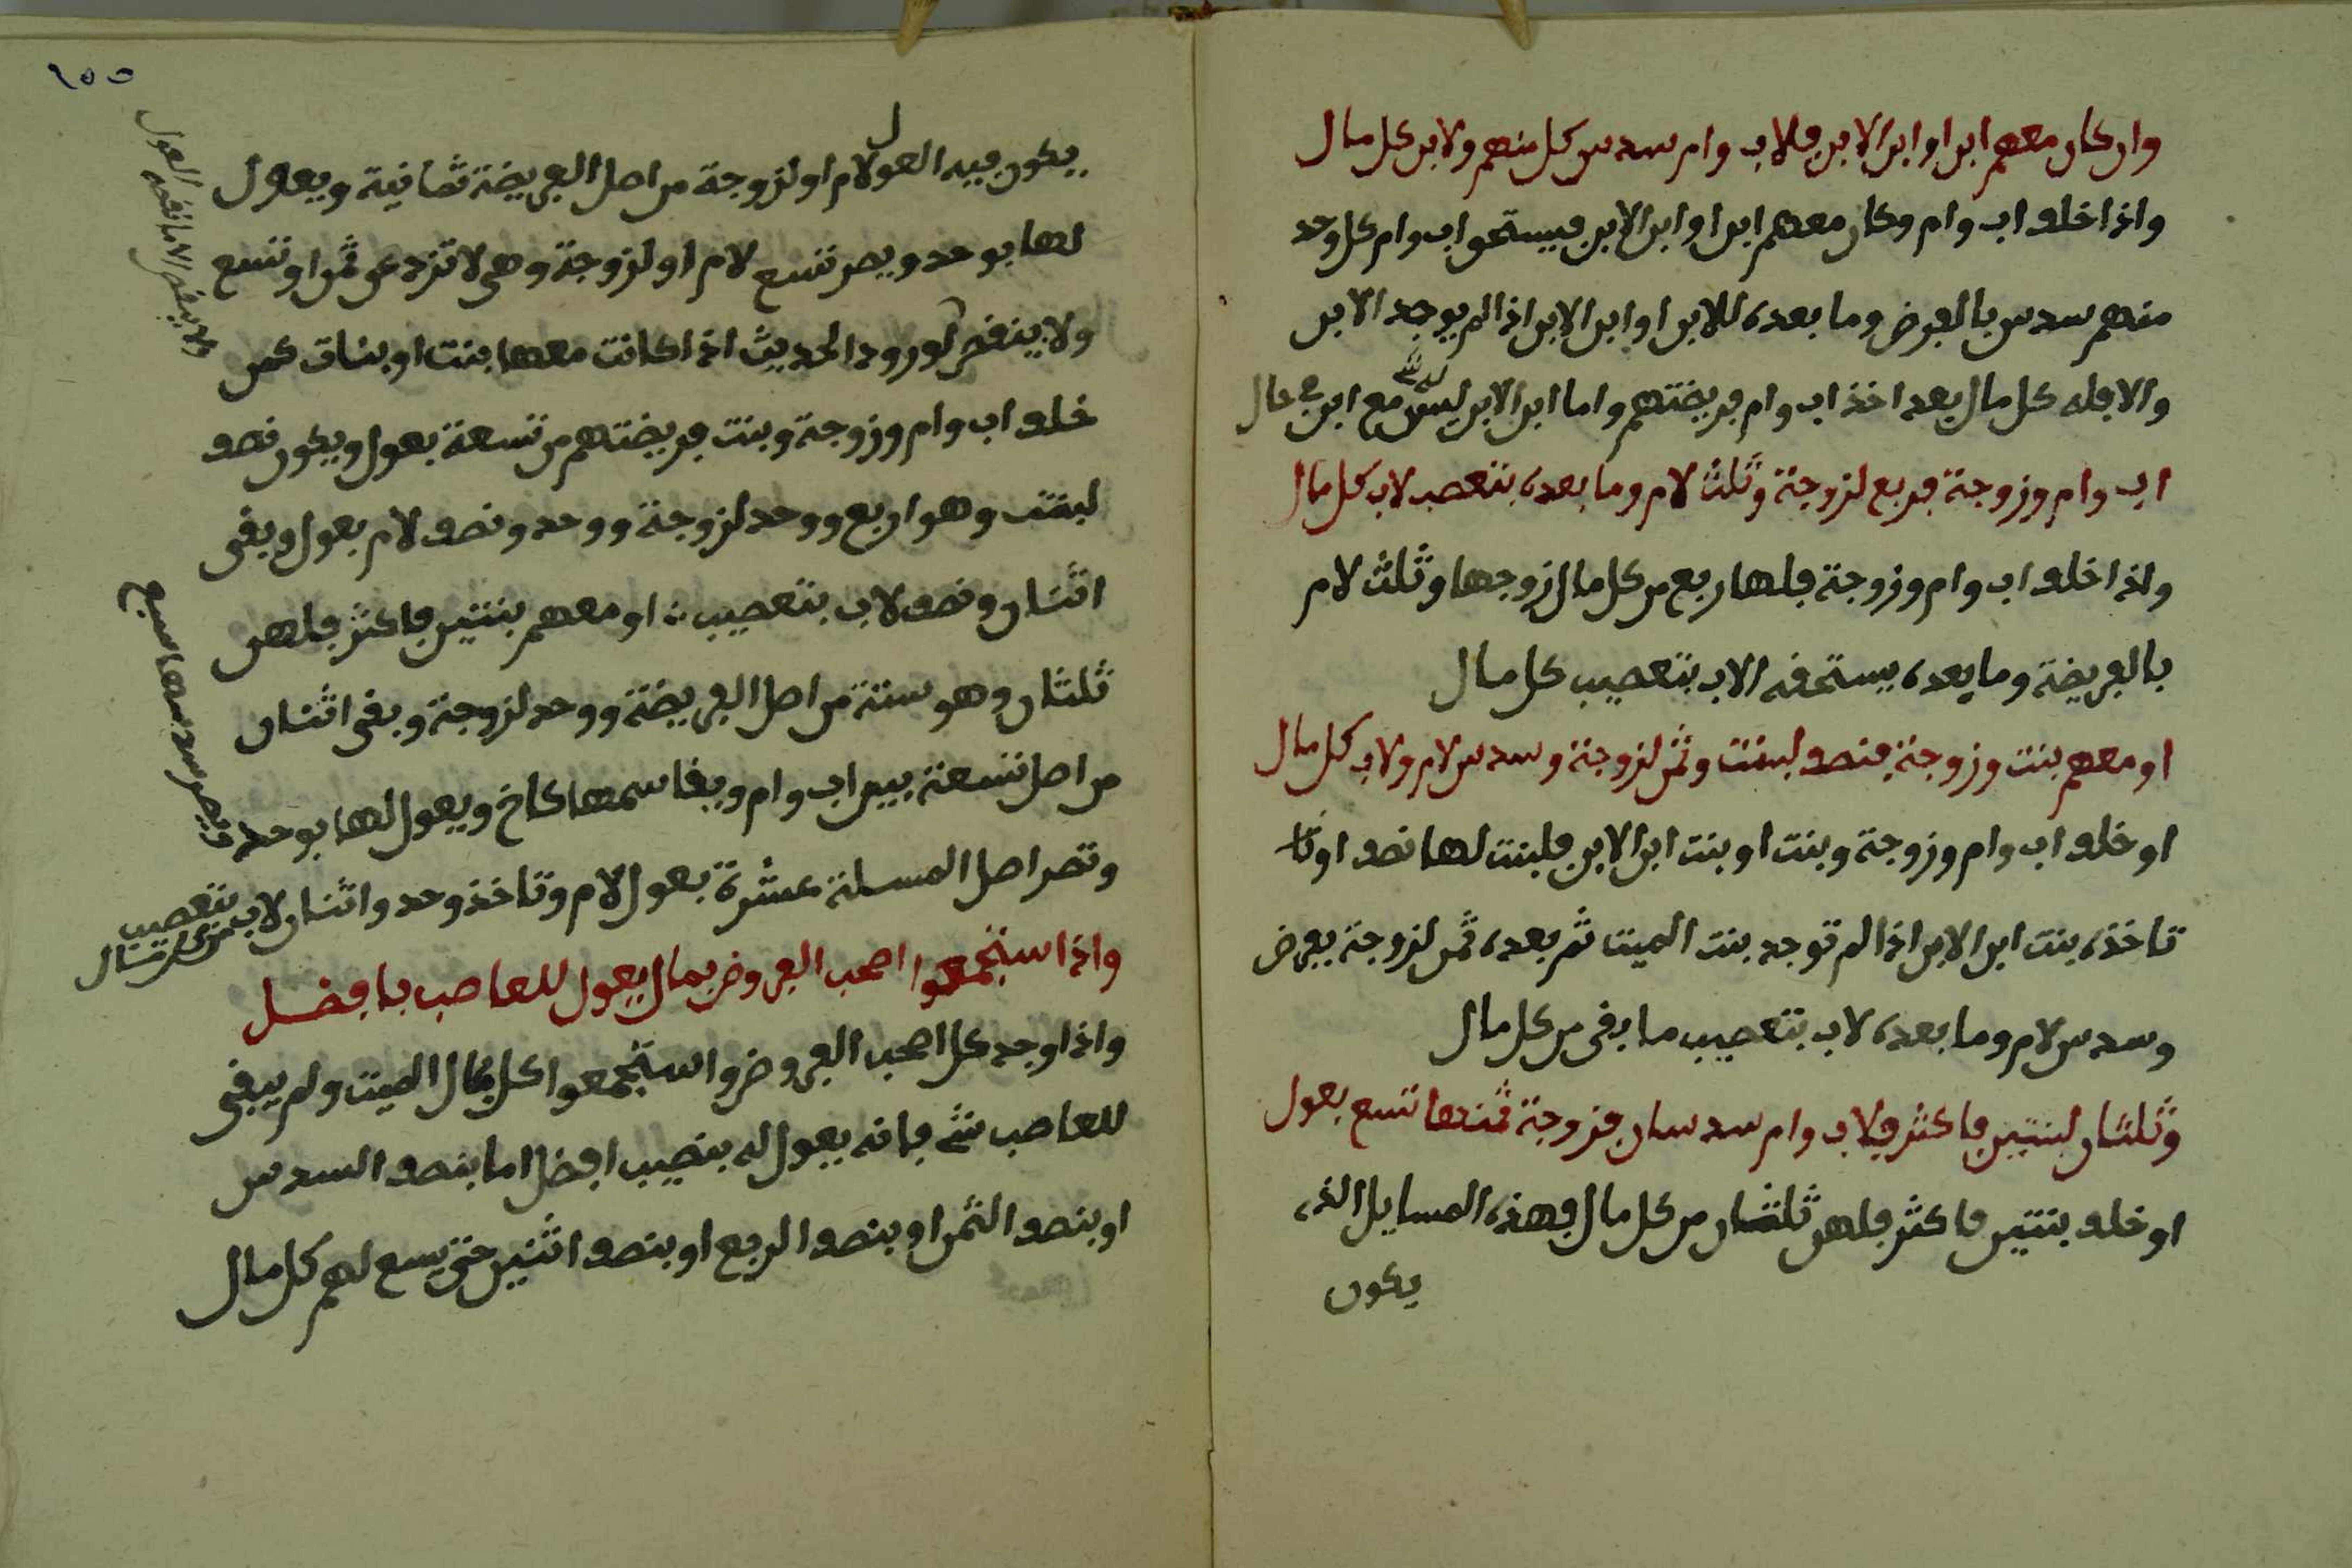 وان كان معهم ابن او ابن الابن فلاب وام سدس كل منهم ولابن كل مال
واذا خلف اب وام وكان معهم ابن او ابن الابن فيستحق اب وام كل وحد
منهم سدس بالفرض وما بعده للابن او ابن الابن اذا لم يوجد الابن
والا فله كل مال بعد اخذ اب وام فريضتهم واما ابن الابن ليس مع ابن حال
اب وام وزوجة فربع لزوجة وثلث لام وما بعده بتعصب لاب كل مال
واذا خلف اب وام وزوجة فلها ربع من كل مال زوجها وثلث لام
بالفريضة وما بعده يستحقه الاب بتعصيب كل مال
او معهم بنت وزوجة فنصف لبنت وثمن لزوجة وسدس لام ولاب كل مال
او خلف اب وام وزوجة وبنت او بنت ابن الابن فلبنت لها نصف او
تاخذه بنت ابن الابن اذا لم توجد بنت الميت ثم بعده ثمن لزوجة بفرض
وسدس لام وما بعده لاب بتعصيب ما بقى من كل مال
وثلثان لبنتين فاكثر فلاب وام سدسان فزوجة ثمنها تسع بعول
او خلف بنتين فاكثر فلهن ثلثان من كل مال فهذه المسايل الذى
يكون
٩٥٥
يكون فيه العول لام او لزوجة من اصل الفريضة ثمانية ويعول
لها بوحد ويصر تسع لام او لزوجة وهى لا تزد عن ثمن او تسع
ولا ينقص لورود الحديث اذا كانت معها بنت او بنات كمن
خلف اب وام وزوجة وبنت فريضتهم من تسعة بعول ويكون نصف
لبنت وهو اربع ووحد لزوجة ووحد ونصف لام بعول وبقى
اثنان ونصف لاب بتعصيب او معهم بنتين فاكثر فلهن
ثلثان وهو ستة من اصل الفريضة ووحد لزوجة وبقى اثنان
من اصل تسعة بين اب وام ويقاسمها كاخ ويعول لها بوحد
فيصر سدسها سبع
وتصر اصل المسلة عشرة بعول لام وتاخذ وحد واثنان لاب بتعصيب
واذا ستجمعوا اصحب الفروض بمال يعول للعاصب بافضل
واذا وجد كل اصحب الفروض واستجمعوا كل مال الميت ولم يبقى
للعاصب شى فانه يعول له بنصيب افضل اما بنصف السدس
او بنصف الثمن او بنصف الربع او بنصف اثنين حتى يسع لهم كل مال